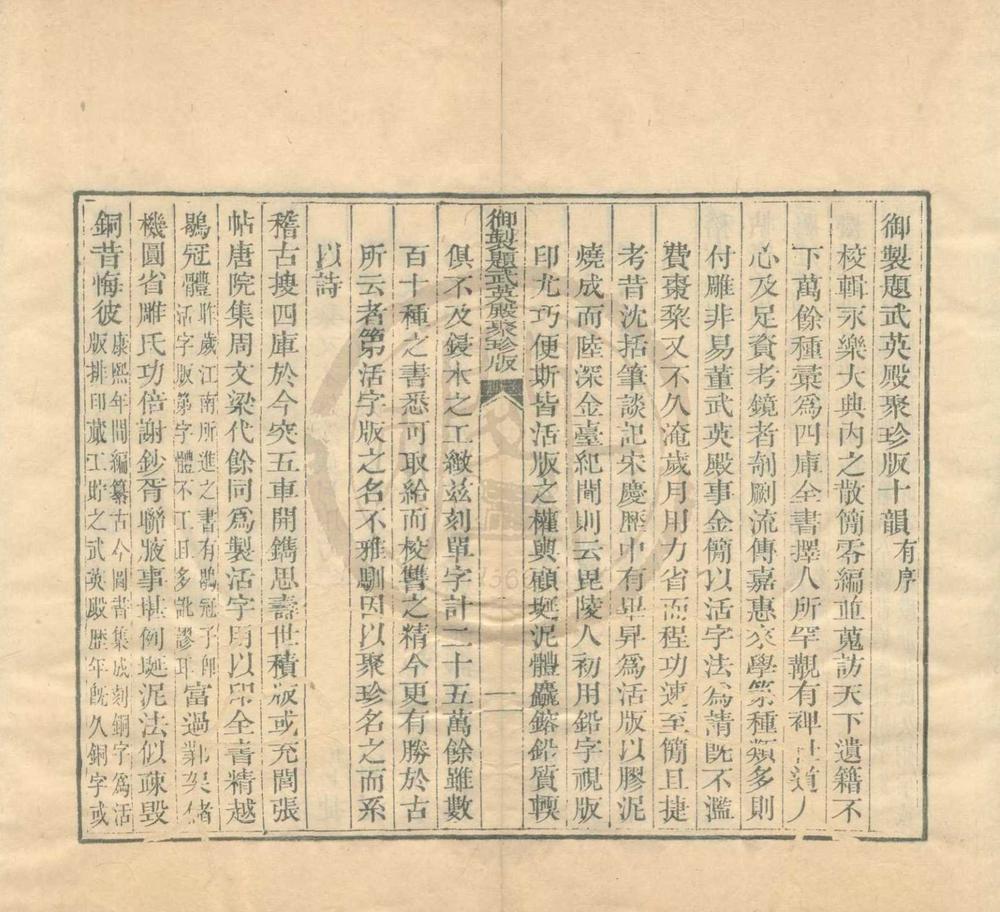 御製題武英殿聚珍版十韻有序
校輯永樂大典內之散簡零編並蒐訪天下遺籍不
下萬餘種彚為四庫全書擇人所罕覯有裨世道人
心及足資考鏡者剞劂流傳嘉惠來學第種類多則
付雕非易董武英殿事金簡以活字法為請既不濫
費棗棃又不久淹歲月用力省而程功速至簡且捷
考昔沈括筆談記宋慶歷中有畢昇為活版以膠泥
燒成而陸深金臺紀聞則云毘陵人初用鉛字視版
印尤巧便斯皆活版之權輿顧埏泥體麤鎔鉛質輭
御製題武英殿聚珍版
一
俱不及鋟木之工緻茲刻單字計二十五萬餘雖數
百十種之書悉可取給而校讐之精今更有勝於古
所云者第活字版之名不雅馴因以聚珍名之而系
以詩
稽古搜四庫於今突五車開鐫思壽世積版或充閭張
帖唐院集周文梁代餘同為製活字用以印全書精越
鶡冠體
昨歲江南所進之書有鶡冠子卽
活字版第字體不工且多訛謬耳
富過鄴架儲
機圓省雕氏功倍謝鈔胥聯腋事堪例埏泥法似疎毀
銅昔悔彼
康熙年間編纂古今圖書集成刻銅字為活
版排印蕆工貯之武英殿歷年既久銅字或